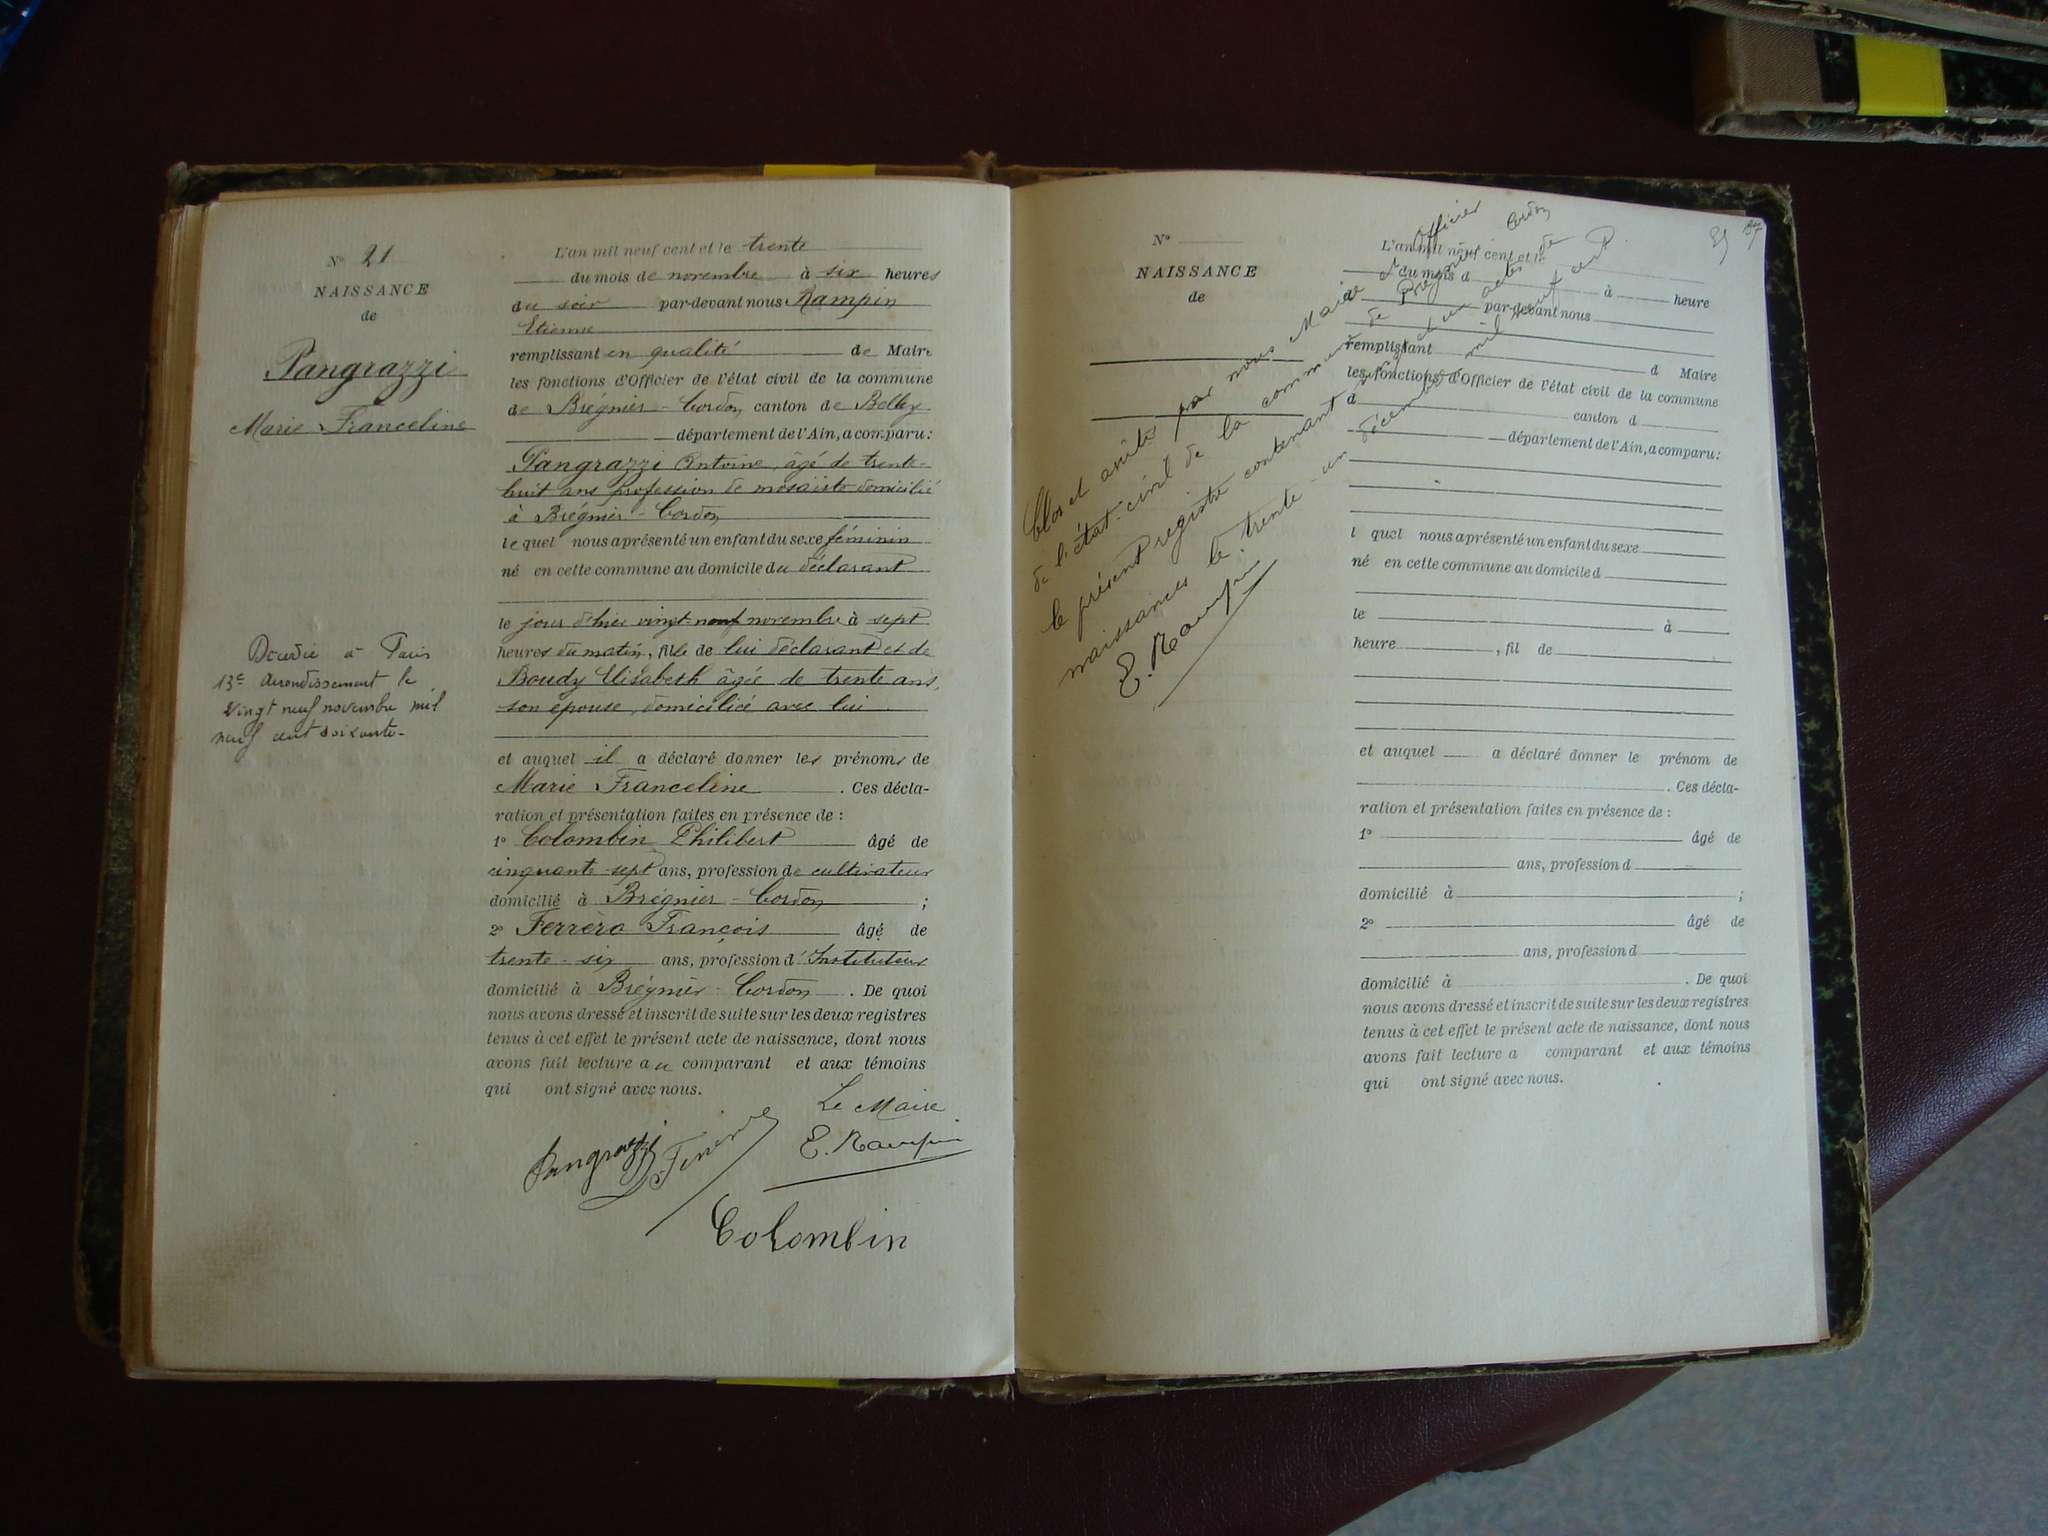 N° 21
NAISSANCE
de
Pangrazzi
Marie Franceline
Décédée à Paris
13e Arrondissement le
vingt neuf novembre mil
neuf cent soixante-
L'an mil neuf cent et le trente
du mois de novembre à six heures
du soir par-devant nous Rampin
Etienne
remplissant en qualité de Maire
les fonctions d'Officier de l'état civil de la commune
de Brégnier-Cordon, canton de Belley
département de l'Ain, a comparu :
Pangrazzi Antoine, âgé de trente-
huit ans profession de mosaïste domicilié
à Brégnier-Cordon
lequel nous a présenté un enfant du sexe féminin
né en cette commune au domicile du déclarant
le jour d'hier vingt-neuf novembre à sept
heures du matin, fille de lui déclarant et de
Boudy Elisabeth âgée de trente ans,
son épouse, domiciliée avec lui
et auquel il a déclaré donner les prénoms de
Marie Franceline. Ces décla-
ration et présentation faites en présence de :
1° Colombin Philibert âgé de
cinquante-sept ans, profession de cultivateur
domicilié à Brégnier-Cordon ;
2° Ferrero François âgé de
trente-six ans, profession d'Instituteur
domicilié à Brégnier-Cordon. De quoi
nous avons dressé et inscrit de suite sur les deux registres
tenus à cet effet le présent acte de naissance, dont nous
avons fait lecture au comparant et aux témoins
qui ont signé avec nous.
Le Maire
Pangrazzi E. Rampin
Colombin
N°
NAISSANCE
de
Clos et arrêté par nous Maire et Officier
de l'état-civil de la commune de Brégnier Cordon
le présent registre contenant vingt un actes de
naissances le trente-un décembre mil neuf cent
E. Rampin
L'an mil neuf cent et le
du mois d à heure
d par-devant nous
remplissant d Maire
les fonctions d'Officier de l'état civil de la commune
d canton d
département de l'Ain, a comparu :
l quel nous a présenté un enfant du sexe
né en cette commune au domicile d
le à
heure , fil de
et auquel a déclaré donner le prénom de
. Ces décla-
ration et présentation faites en présence de :
1° âgé de
ans, profession d
domicilié à ;
2° âgé de
ans, profession d
domicilié à . De quoi
nous avons dressé et inscrit de suite sur les deux registres
tenus à cet effet le présent acte de naissance, dont nous
avons fait lecture a comparant et aux témoins
qui ont signé avec nous.